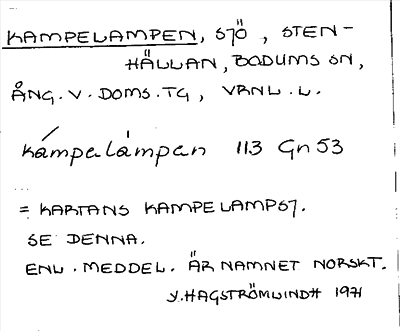 KAMPELAMPEN, SJÖ, STEN-
HÄLLAN, BODUMS SN,
ÅNG. V. DOMS. TG, VRNL. L.
kámpelàmpen 113 Gn 53
= KARTANS KAMPELAMPSJ.
SE DENNA.
ENL. MEDDEL. ÄR NAMNET NORSKT.
Y. HAGSTRÖMLINDH 1971